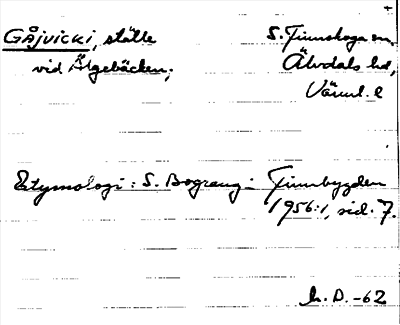 GÅJVICKI, ställe
vid Älgebäcken;
S. Finnskoga sn,
Älvdals hd,
Värml. l
Etymologi: S. Bograng i Finnbygden
1956:1, sid. 7.
D. -62